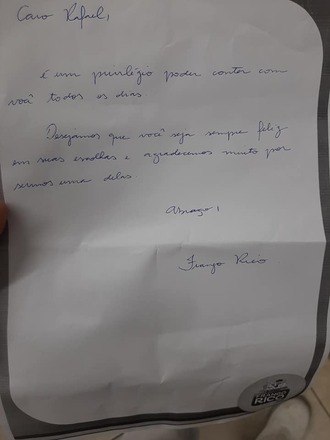 Caro Rafael,
é um privilégio poder contar com
você todos os dias
Desejamos que você seja sempre feliz
em suas escolhas e agradecemos muito por
sermos uma delas
Abraço,
Frango Rico
FRANGO
RICO